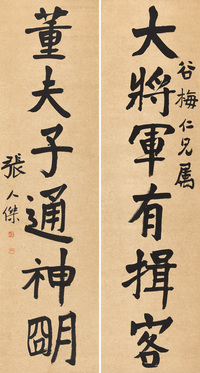 谷梅仁兄属
大將軍有揖客
董夫子通神朙
張人傑